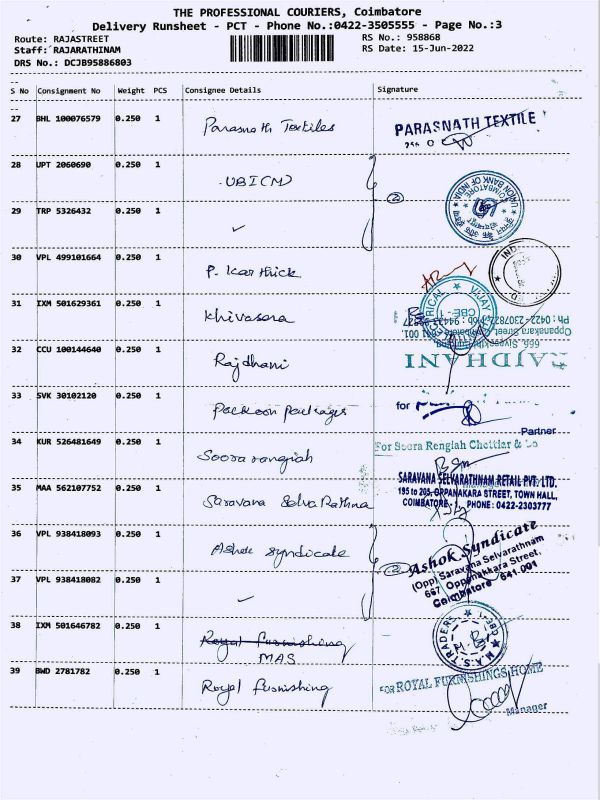 THE PROFESSIONAL COURIERS, Coimbatore
Delivery Runsheet - PCT - Phone No.:0422-3505555 - Page No.:3
Route: RAJASTREET
RS No.: 958868
Staff: RAJARATHINAM
RS Date: 15-Jun-2022
DRS No.: DCJB95886803
S No Consignment No Weight PCS Consignee Details Signature
27 BHL 100076579 0.250 1 Parasnath Textiles PARASNATH TEXTILE
28 UPT 2060690 0.250 1 UBI(M) UNION BANK OF INDIA COIMBATORE
2
29 TRP 5326432 0.250 1 ✓
30 VPL 499101664 0.250 1 P. Karthick
31 IXM 501629361 0.250 1 Khivasara
VIJAY
CBE - 1
32 CCU 100144640 0.250 1 Rajdhani RAJDHANI
Oppanakara Street,
Ph : 0422-
33 SVK 30102120 0.250 1 Packoon packages for
Partner
34 KUR 526481649 0.250 1 Soora rangiah For Soora Rengiah Chettiar & Co
35 MAA 562107752 0.250 1 Saravana Selva Rathna SARAVANA SELVARATHNAM RETAIL PVT. LTD.
195 to 205, OPPANAKARA STREET, TOWN HALL,
COIMBATORE - PHONE: 0422-2303777
36 VPL 938418093 0.250 1 Ashok syndicate Ashok Syndicate
(Opp) Saravana Selvarathnam
667, Oppanakkara Street,
Coimbatore 641 001
2
37 VPL 938418082 0.250 1 ✓
38 IXM 501646782 0.250 1 Royal furnishing
MAS M.A.S. TRADERS CBE-1
39 BWD 2781782 0.250 1 Royal furnishing FOR ROYAL FURNISHINGS HOME
Manager